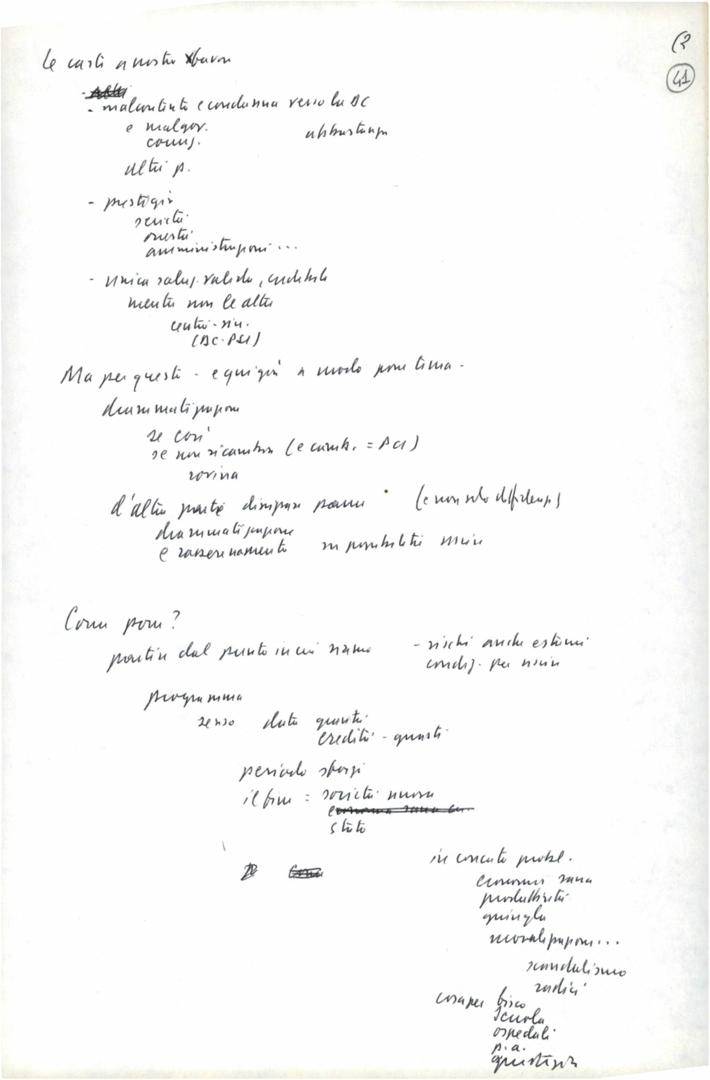 Le carte a nostro favore
41
- malcontento e condanna verso la DC
e malgov.
altri p.
- prestigio
serietà
onestà
amministrazioni...
- unica valida, credibile
mentre non le altre
centro-sin.
(DC-PSI)
Ma per questo - e qui già a modo
drammatizzazione
se così
se non si cambia (e camb. = PCI)
rovina
d'altra parte dissipare paure (e non solo diffidenze)
drammatizzazione
e rasserenamento su possibilità uscire
Come porci?
partire dal punto in cui siamo - rischi anche esterni
condiz. per uscire
programma
senso data gravità
eredità - guasti
periodo sforzi
il fine = società nuova
Stato
in concreto probl.
economia sana
produttività
giungla
moralizzazione...
scandalismo
radici
cosa per fisco
scuola
ospedali
p.a.
giustizia